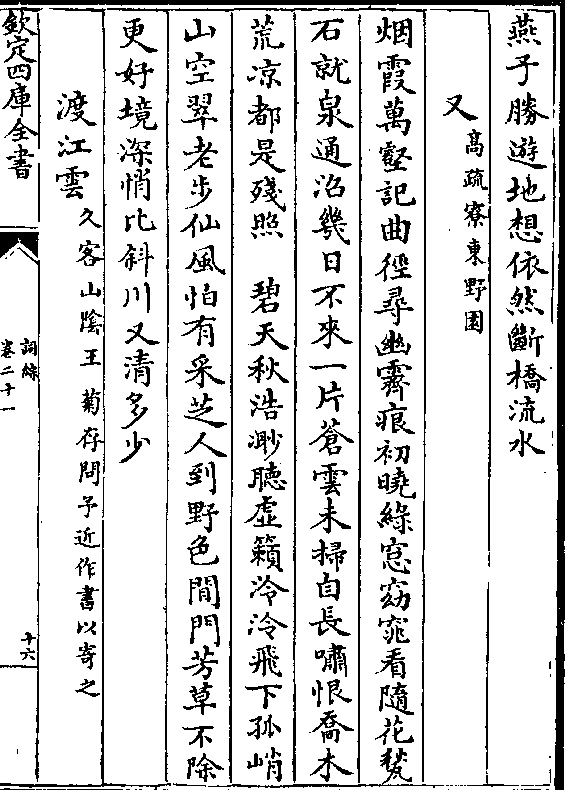 燕子勝遊地想依然斷橋流水
又高疏寮東野園
烟霞萬壑記曲徑尋幽霽痕初曉綠窓窈窕看隨花甃
石就泉通沼幾日不來一片蒼雲未掃自長嘯恨喬木
荒凉都是殘照　碧天秋浩渺聽虛籟泠泠飛下孤峭
山空翠老步仙風怕有采芝人到野色閒門芳草不除
更好境深悄比斜川又清多少
渡江雲久客山陰王菊存問予近作書以寄之
欽定四庫全書
詞綜
卷二十一
十六